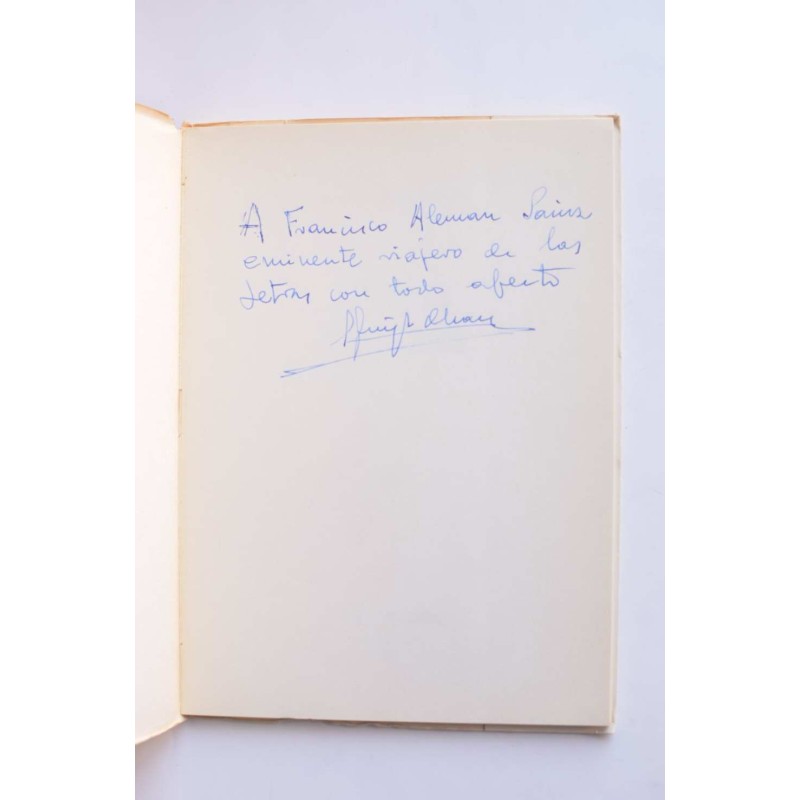 A Francisco Aleman Sainz
eminente viajero de las
letras con todo afecto